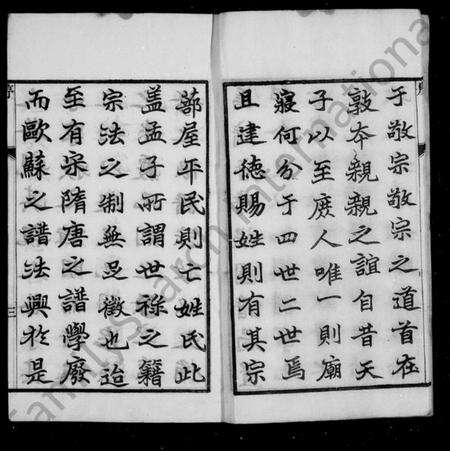 于敬宗敬宗之道首在
敦本親親之誼自昔天
子以至庶人唯一則廟
寢何分于四世二世焉
且建德賜姓則有其宗
蔀屋平民則亡姓氏此
盖孟子所謂世祿之籍
宗法之制無足徵也迨
至有宋隋唐之譜學廢
而歐蘇之譜法興於是
序
三
FamilySearch International